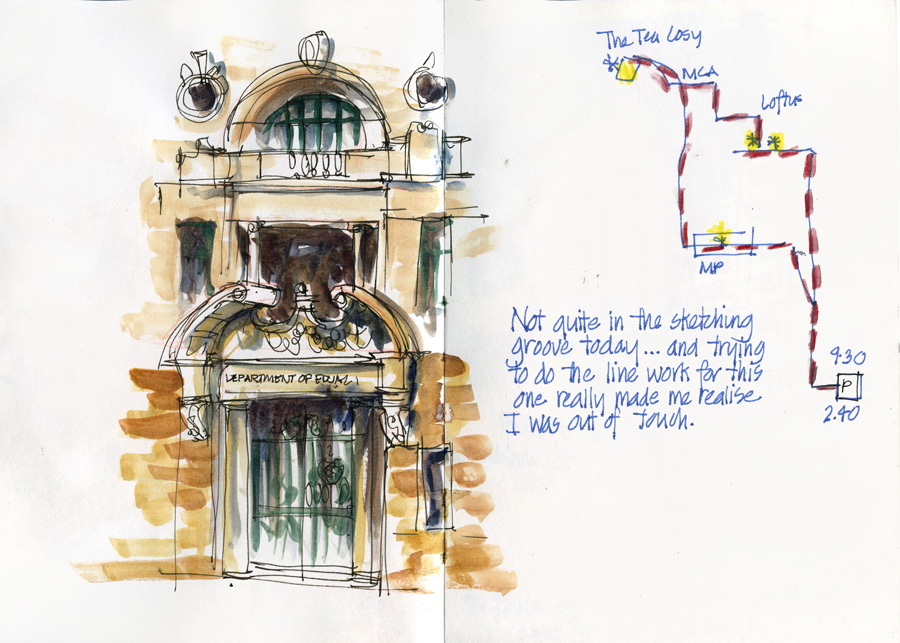 The Tea Cosy
MCA
Loftus
MP
Not quite in the sketching
groove today... and trying
to do the line work for this
one really made me realise
I was out of touch.
9.30
P
2.40
DEPARTMENT OF